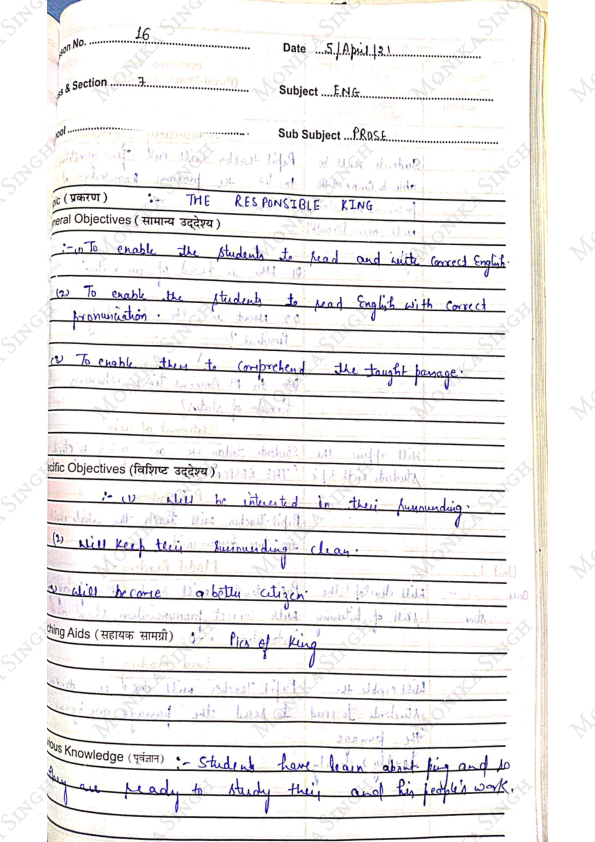 son No. 16
Date 5/April/21
ss & Section 7
Subject ENG
ool
Sub Subject PROSE
ic (प्रकरण) :- THE RESPONSIBLE KING
neral Objectives (सामान्य उद्देश्य)
:- (1) To enable the students to read and write correct English.
(2) To enable the students to read English with correct
pronunciation.
(3) To enable them to comprehend the taught passage.
cific Objectives (विशिष्ट उद्देश्य)
:- (1) Will be interested in their surrounding.
(2) Will keep their surrounding clean.
will become a better citizen.
ching Aids (सहायक सामग्री) :- Pics of king
ious Knowledge (पूर्वज्ञान) :- Students have learn about king and so
they are ready to study their and his people's work.
MONIKA SINGH